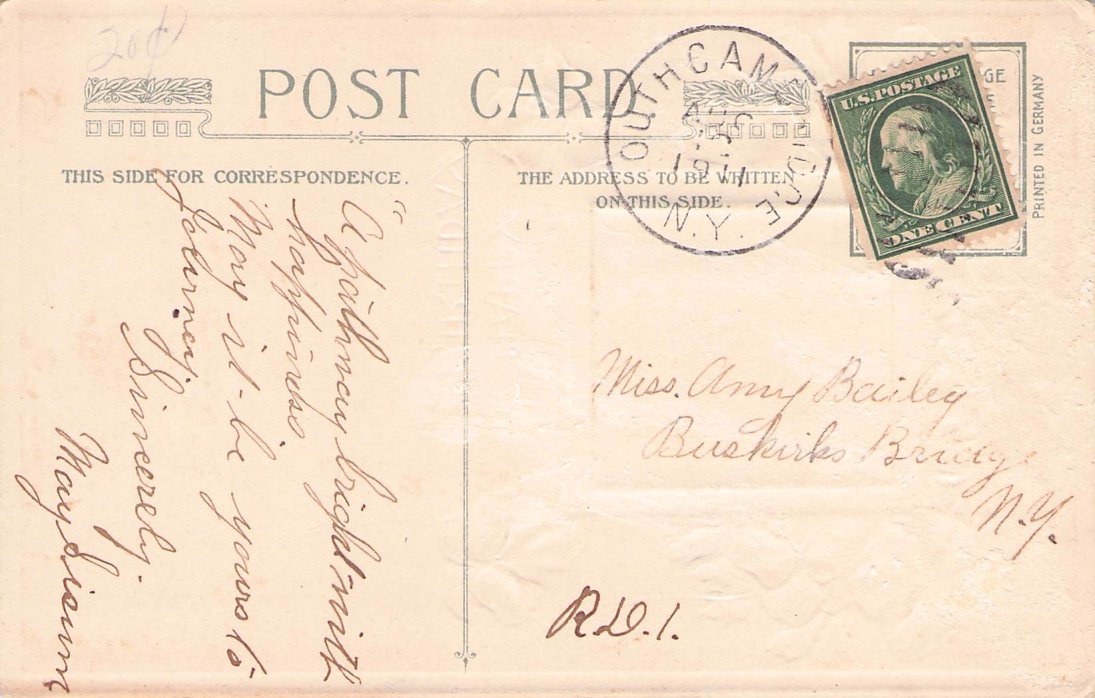 20¢
POST CARD
THIS SIDE FOR CORRESPONDENCE.
THE ADDRESS TO BE WRITTEN
ON THIS SIDE.
SOUTH CAMBRIDGE
AUG
1911
N.Y.
U.S. POSTAGE
ONE CENT
PRINTED IN GERMANY
"A pathway bright with
happiness
May it be yours to
Journey.
Sincerely.
May
Miss. Amy Bailey
Buskirks Bridge
N.Y.
R.D.1.